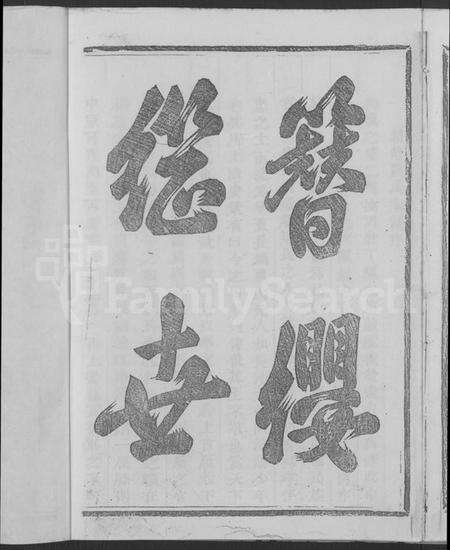 簪纓
継世
FamilySearch